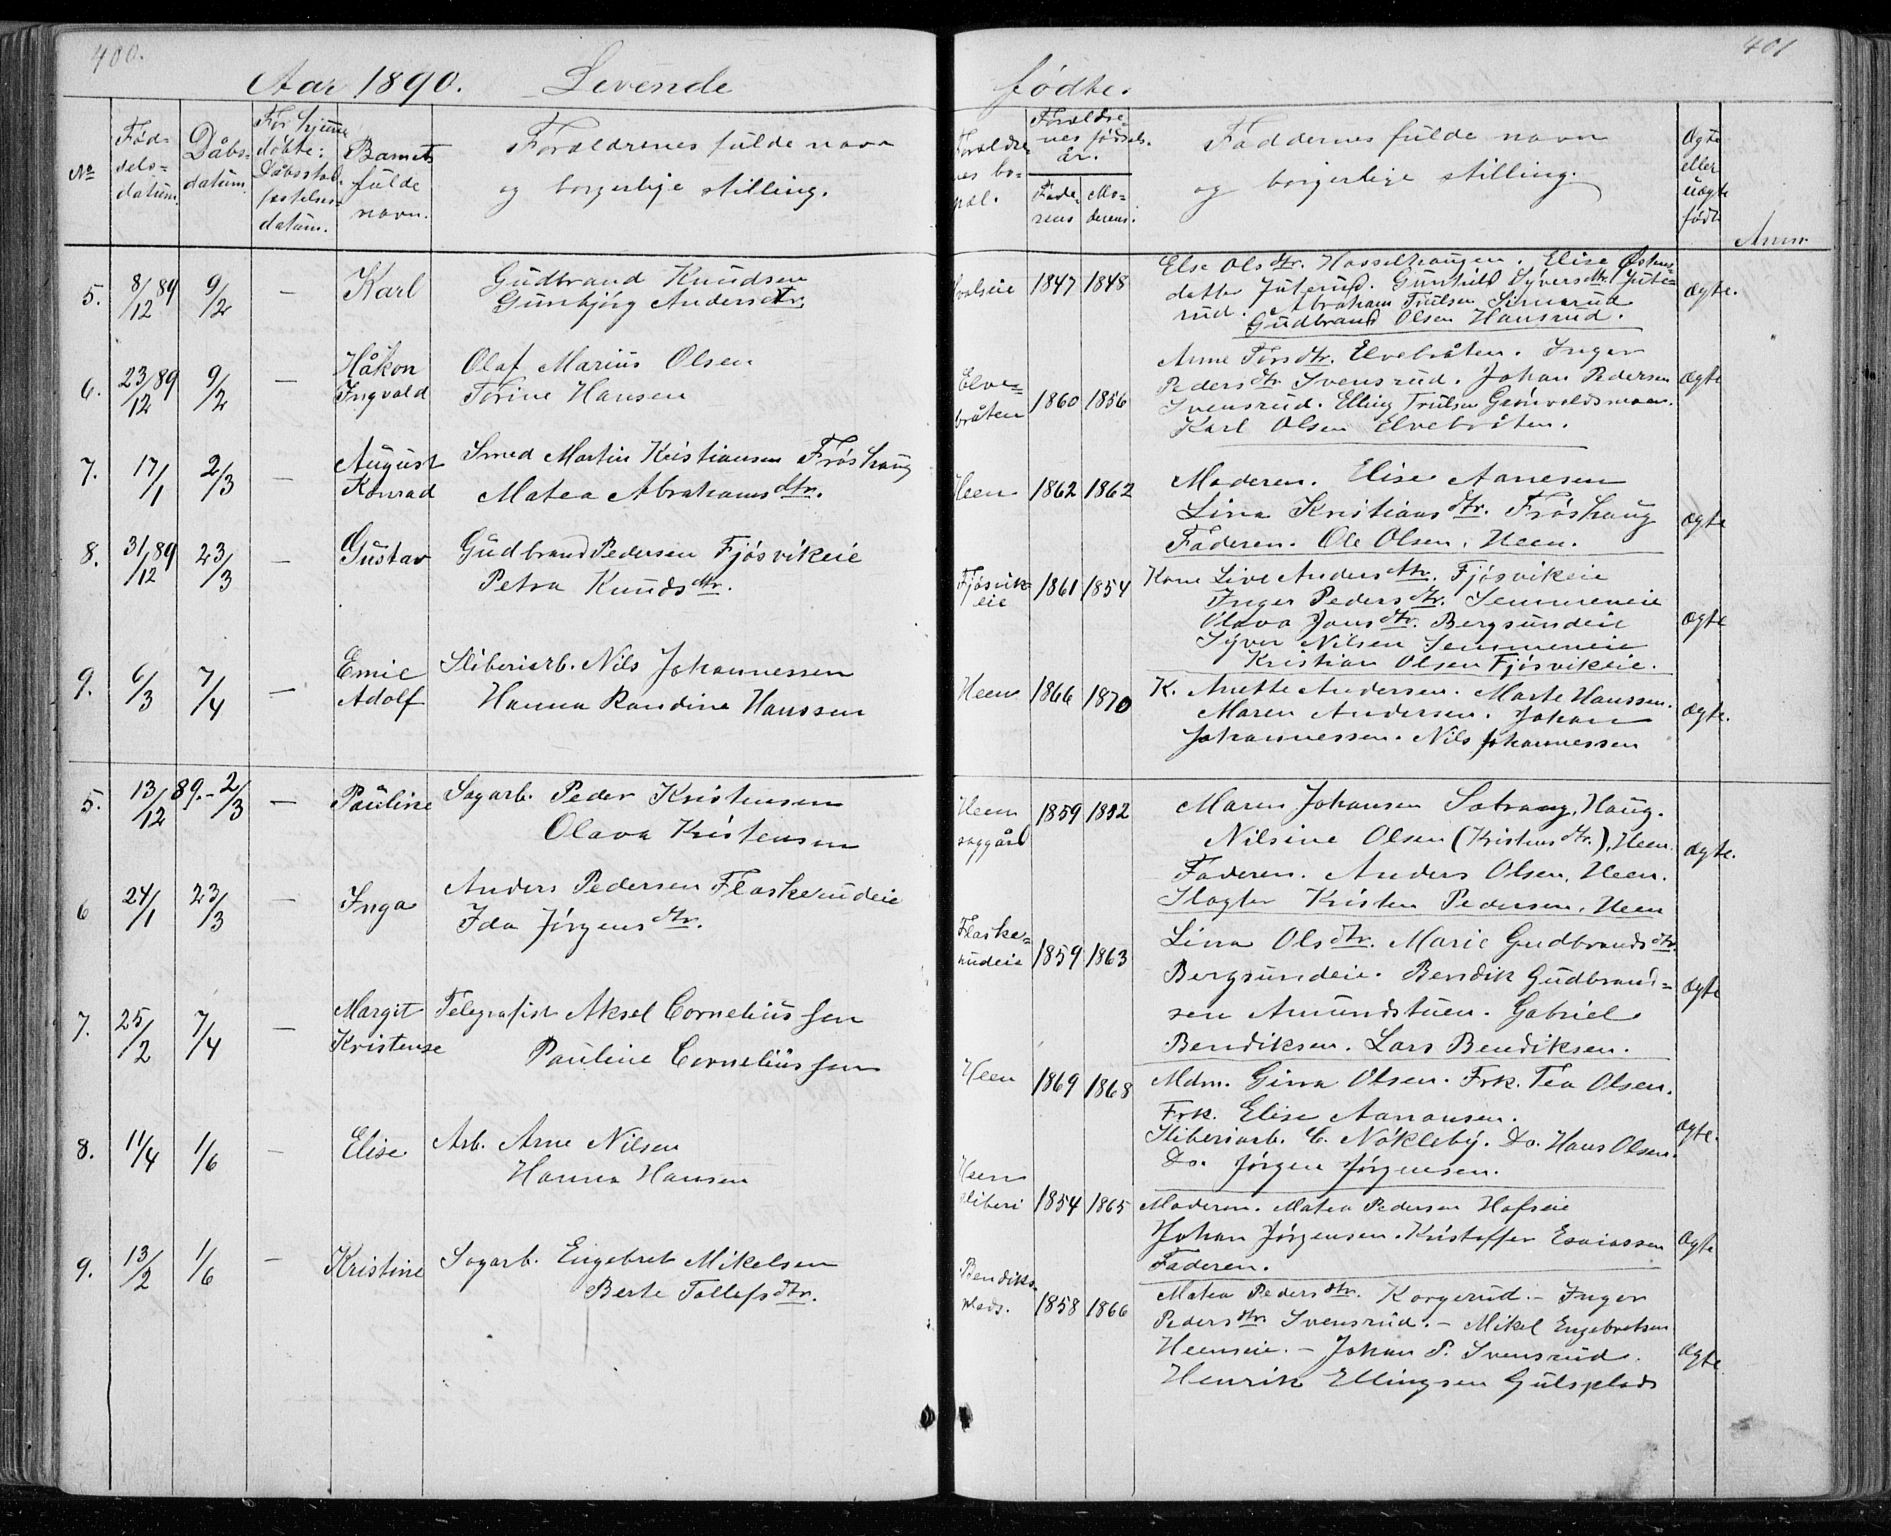 400.
Aar 1890. Levende
No
Fød-
sels-
datum.
Dåbs-
datum.
For hjemme
døbte:
Dåbsstad-
festelses-
datum.
Barnets
fulde
navn.
Forældrenes fulde navn
og borgerlige stilling.
5. 8/12 89 9/2 Karl Gudbrand Knudsen
Gunbjørg Andersdtr.
6. 23/12 89 9/2 — Håkon Olaf Marius Olsen
Ingvald Torine Hansen
7. 17/1 2/3 — August Smed Martin Kristiansen Frøshaug
Konrad Matea Abrahamsdtr.
8. 31/12 89 23/3 — Gustav Gudbrand Pedersen Fjøsvikeie
Petra Knudsdtr.
9. 6/3 7/4 — Emil Sliberiarb. Nils Johannessen
Adolf Hanna Randine Hanssen
5. 13/12 89. - 2/3 — Pauline Sagarb. Peder Kristensen
Olava Kristensen
6 24/1 23/3 — Inga Anders Pedersen Flaskerudeie
Ida Jørgensdtr.
7. 25/2 7/4 — Margit Telegrafist Aksel Corneliussen
Kristense Pauline Corneliussen
8. 11/4 1/6 — Elise Arb. Arne Nilsen
Hanna Hansen
9. 13/2 1/6 — Kristine Sagarb. Engebret Mikelsen
Berte Tollefsdtr.
401
fødte.
Forældre-
nes bo-
pæl.
Forældre-
nes fødsels-
år.
Fade-
rens
Mo-
derens.
Faddernes fulde navn
og borgerlige stilling.
Ægte
eller
uægte
født
Anm.
1847 1848 Else Olsdtr. Hasselhaugen. Elise Østens-
datter Juterud. Gunhild Syversdtr. Jute-
rud. Abraham Trulsen Simerud
Gudbrand Olsen Hansrud.
Ægte.
Elve-
bråten 1860 1856 Anne Torsdtr. Elvebråten. Inger
Pedersdtr Svensrud. Johan Pedersen
Svensrud. Elling Trulsen Grønvoldsmoen.
Karl Olsen Elvebråten.
Ægte
Heen 1862 1862 Moderen. Elise Aanesen
Lina Kristiansdtr. Frøshaug
Faderen. Ole Olsen. Heen.
Ægte
Fjøsvik-
eie 1861 1854 Kone Live Andersdtr. Fjøsvikeie
Inger Pedersdtr. Semmeneie
Olava Jonsdtr. Bergsundeie
Syver Nilsen Semmeneie
Kristian Olsen Fjøsvikeie.
Ægte
Heen 1866 1870 K. Anette Andersen. Marte Hanssen.
Maren Andersen. Johan
Johannessen. Nils Johannessen
Ægte.
Heen
saggård 1859 1852 Maren Johansen Solrang, Haug.
Nilsine Olsen (Kristensdtr.), Heen.
Faderen. Anders Olsen, Heen.
Slagter Kristen Pedersen, Heen
Ægte.
Flaske-
rudeie 1859 1863 Lina Olsdtr. Marie Gudbrandsdtr.
Bergsundeie. Bendik Gudbrand-
sen Amundstuen. Gabriel
Bendiksen. Lars Bendiksen.
Ægte
Heen 1869 1868 Mdm. Gina Olsen. Frk. Tea Olsen.
Frk. Elise Aanansen.
Sliberiarb. C. Nøkleby. Do. Hans Olsen.
Do. Jørgen Jørgensen.
Ægte.
Heen
sliberi 1854 1865 Moderen. Matea Pedersen Hofseie
Johan Jørgensen. Kristoffer Esaiassen
Faderen.
Ægte
Bendiks-
plads. 1858 1866 Matea Pedersdtr. Korgerud. – Inger
Pedersdtr Svensrud. – Mikel Engebretsen
Heenseie. – Johan P. Svensrud.
Henrik Ellingsen Gulsplads
Ægte